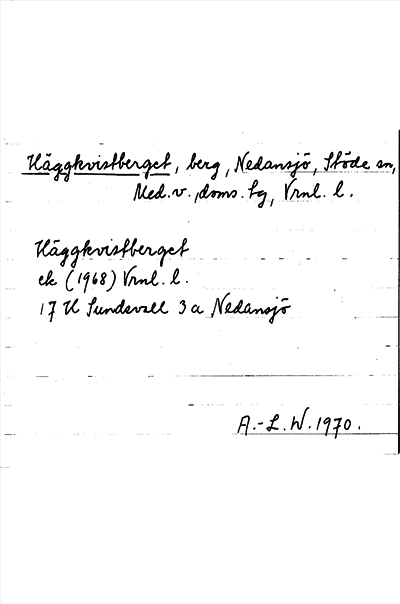 Häggkvistberget, berg, Nedansjö, Stöde sn,
Med. v. doms. tg, Vrnl. l.
Häggkvistberget
ek (1968) Vrnl. l.
17 H Sundsvall 3 a Nedansjö
A.-L. W. 1970.